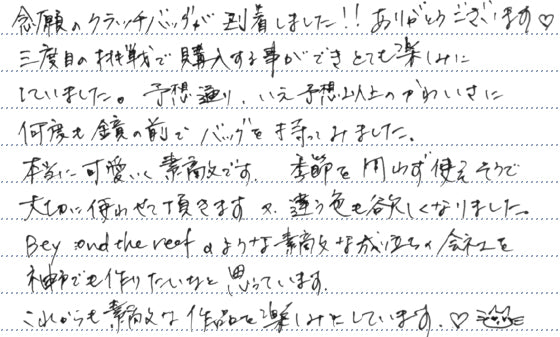 念願のクラッチバッグが到着しました!! ありがとうございます♡
三度目の挑戦で購入する事ができとても楽しみに
していました。予想通り、いえ予想以上のかわいさに
何度も鏡の前でバッグを持ってみました。
本当に可愛いく素敵です。季節を問わず使えそうで
大切に使わせて頂きます。違う色も欲しくなりました。
Beyond the reefのような素敵な成り立ちの会社を
神戸でも作りたいなと思っています。
これからも素敵な作品を楽しみにしています。♡